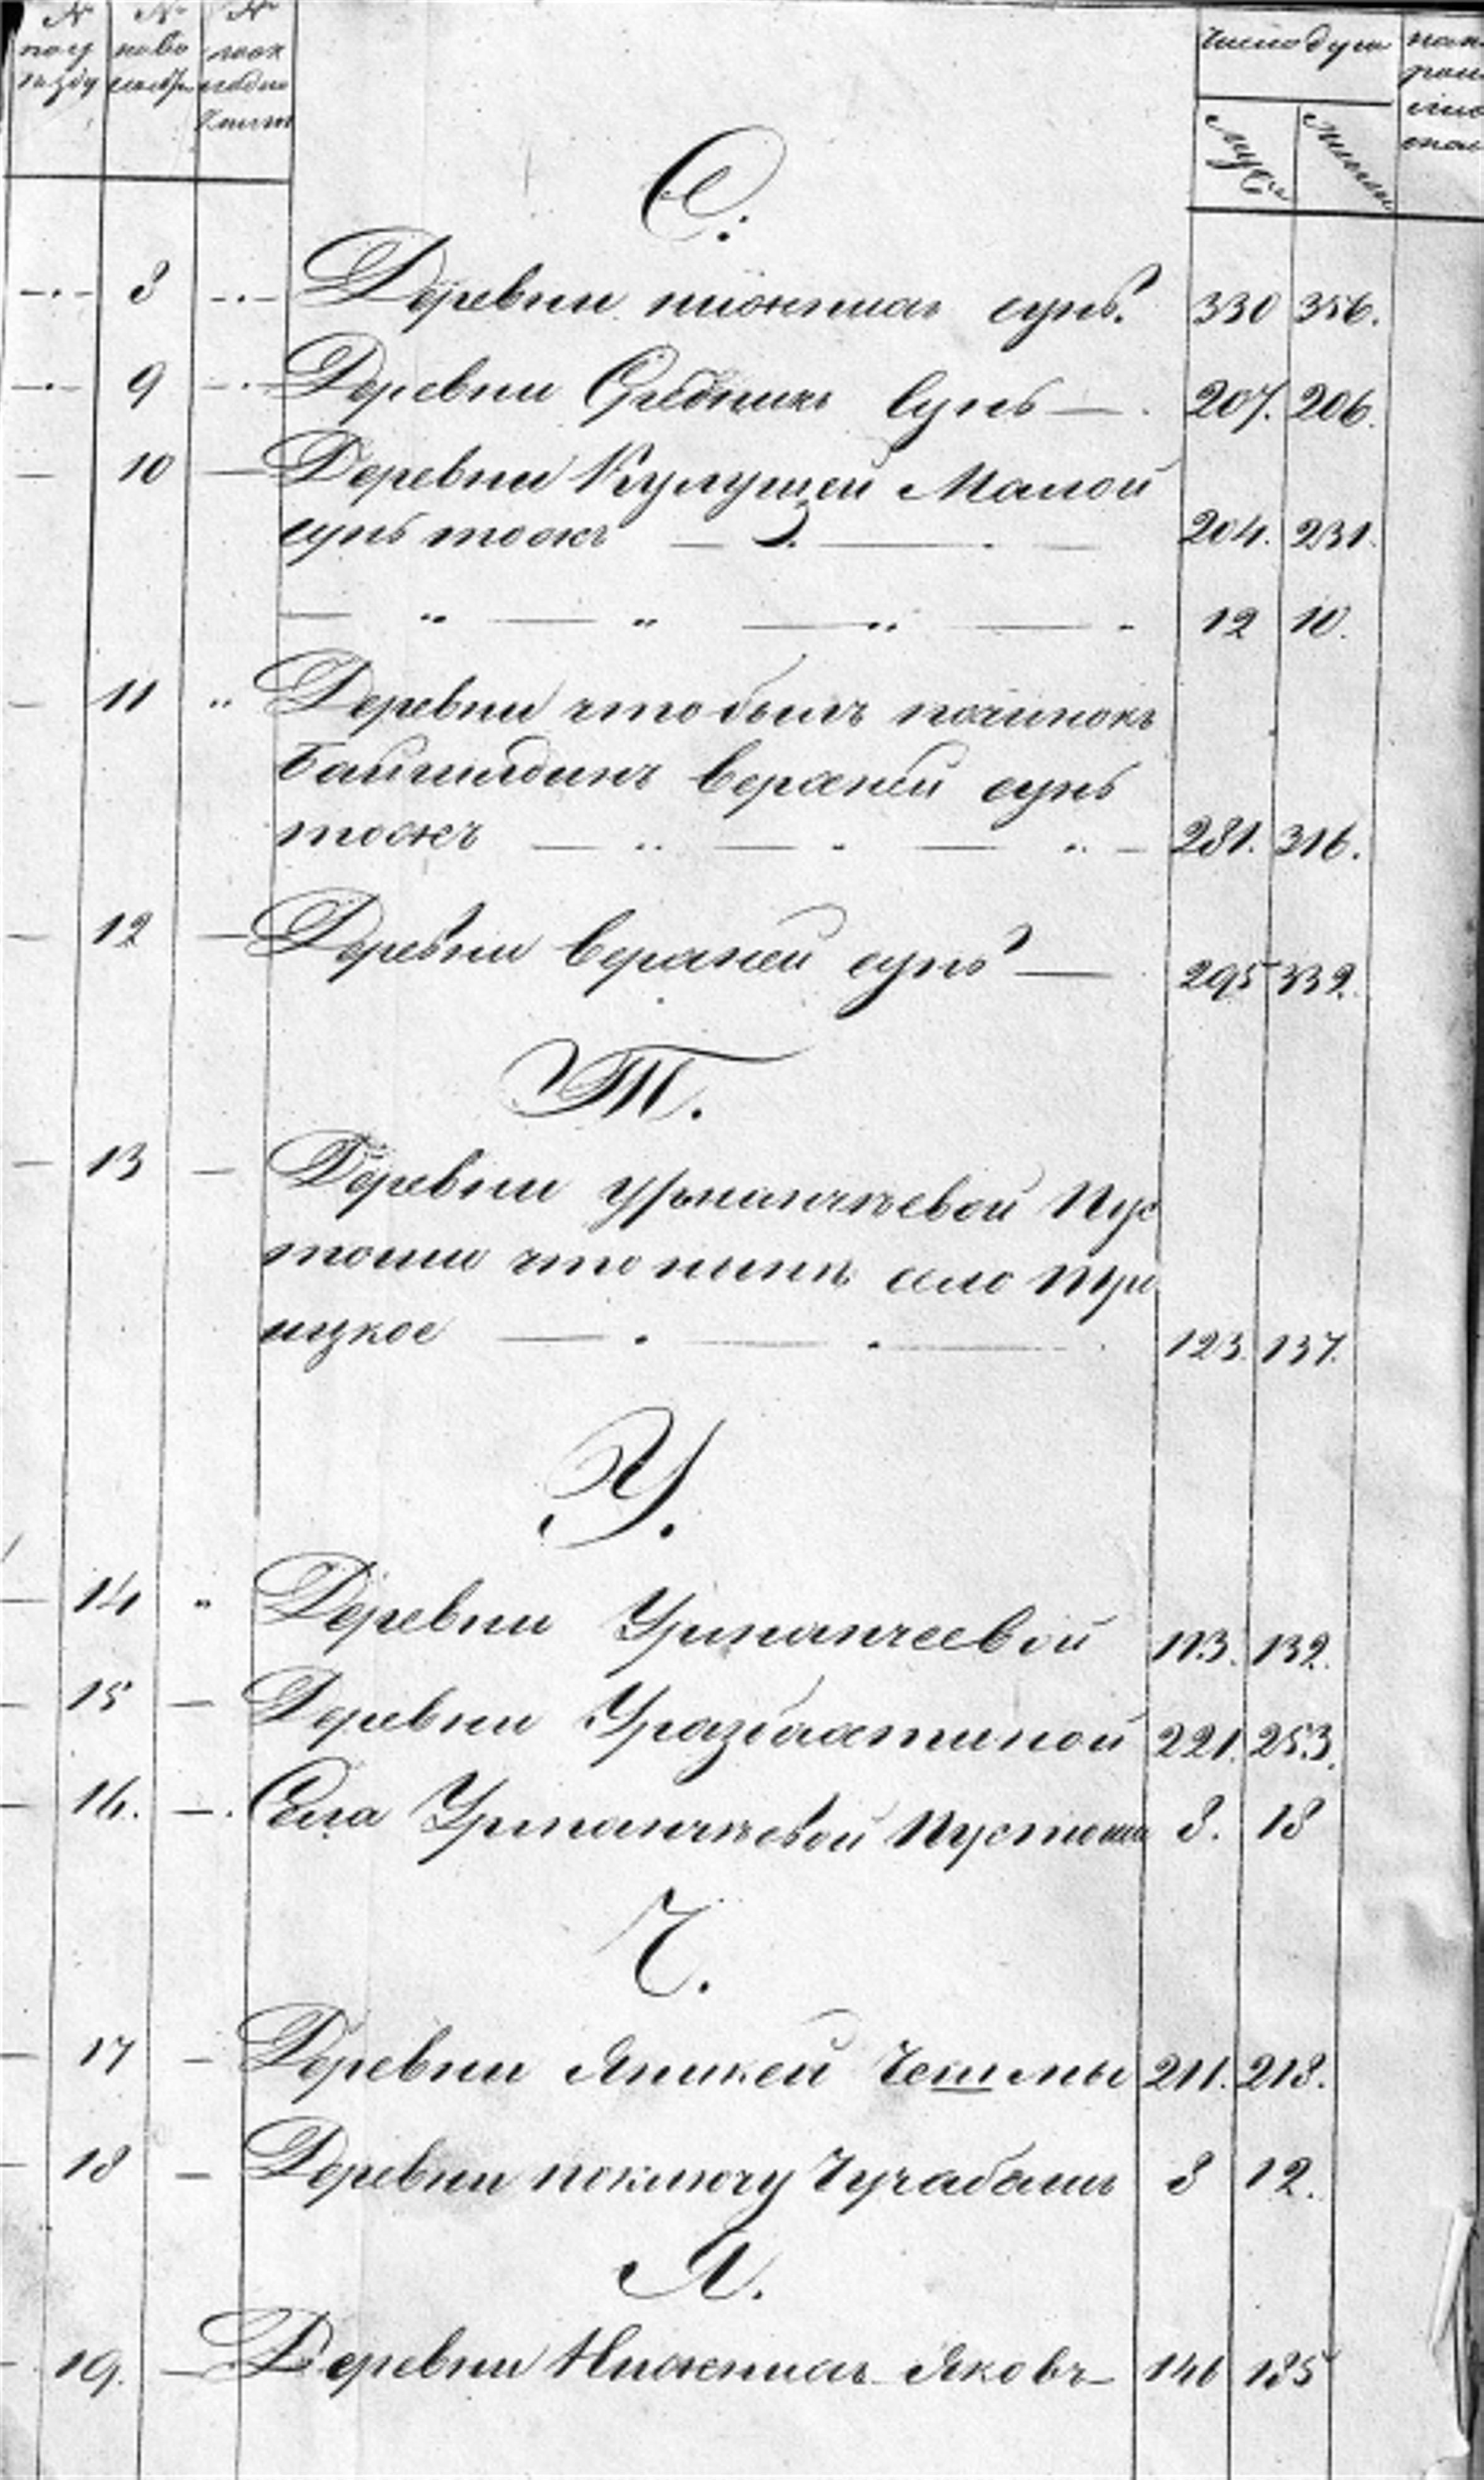 № № №
по у ново
езду
Число душ
Муж Женск
С.
8 Деревни нижниаъ сунь. 330 356.
9 Деревни Среднихъ Сунь 207. 206.
10 Деревни Кулущей Малой
сунь тожъ 204. 231.
12 10.
11 Деревни что былъ починокъ
Байгилдинъ верхней сунь
тожъ 281. 316.
12 Деревни верхней сунь 295 339.
Т.
13 Деревни урманчѣевой Пус
тоши что нынѣ село Трои
ицкое 123. 137.
У.
14 Деревни Урманчеевой 113. 132.
15 Деревни Уразбахтиной 221. 253.
16. Села Урманчѣевой Пустоши 8. 18
Ч.
17 Деревни Яникей Чешмы 211. 218.
18 Деревни поключу Чучабашъ 8 12.
Я.
19. Деревни Нижниаъ Яковъ 146 185